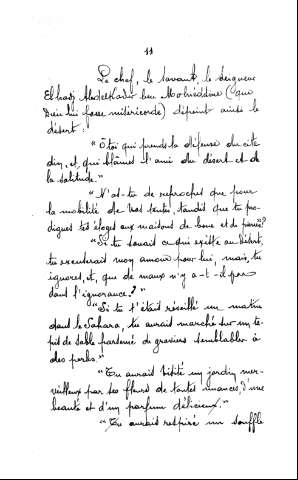 11
Le chef, le savant, le seigneur
El hadj Abdelkader ben Mohieddine (que
Dieu lui fasse miséricorde) dépeint ainsi le
désert :
"Ô toi qui prends la défense du cita
din, et qui blâmes l'ami du désert et de
la solitude."
"N'as-tu de reproches que pour
la mobilité de nos tentes, tandis que tu pro-
digues tes éloges aux maisons de boue et de pierre?"
"Si tu savais ce qui existe au désert,
tu excuserais mon amour pour lui, mais, tu
ignores, et, que de maux n'y a-t-il pas
dans l'ignorance?"
"Si tu t'étais réveillé un matin
dans le Sahara, tu aurais marché sur un ta-
pis de sable parsemé de graviers semblables à
des perles."
"Tu aurais visité un jardin mer-
veilleux par ses fleurs de toutes nuances, d'une
beauté et d'un parfum délicieux."
"Tu aurais respiré un souffle